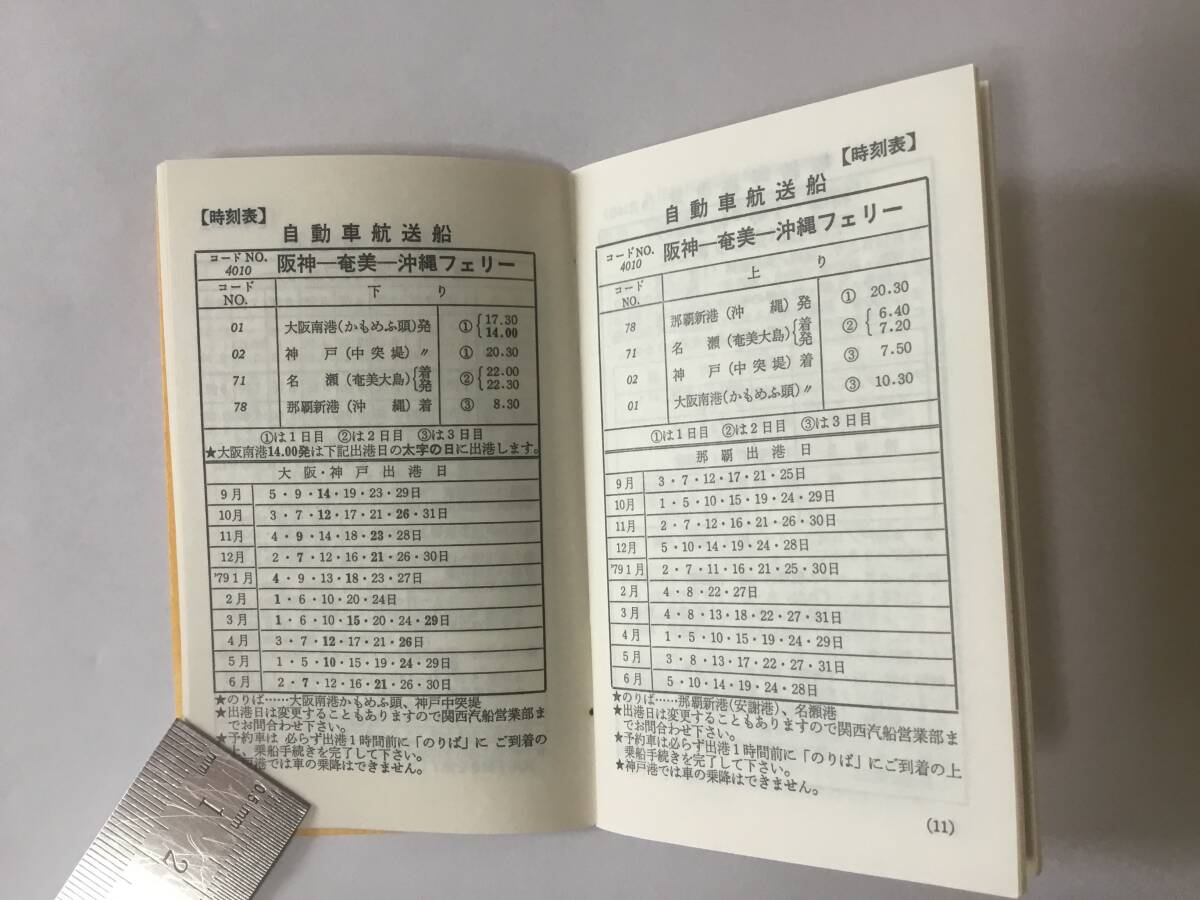 【時刻表】
自動車航送船
コードNO. 4010 阪神―奄美―沖縄フェリー
コードNO. 下り
01 大阪南港(かもめふ頭)発 ①{17.30 14.00
02 神戸(中突堤)〃 ① 20.30
71 名瀬(奄美大島){着発 ②{22.00 22.30
78 那覇新港(沖縄)着 ③ 8.30
①は1日目 ②は2日目 ③は3日目
★大阪南港14.00発は下記出港日の太字の日に出港します。
大阪・神戸出港日
9月 5・9・14・19・23・29日
10月 3・7・12・17・21・26・31日
11月 4・9・14・18・23・28日
12月 2・7・12・16・21・26・30日
'79 1月 4・9・13・18・23・27日
2月 1・6・10・20・24日
3月 1・6・10・15・20・24・29日
4月 3・7・12・17・21・26日
5月 1・5・10・15・19・24・29日
6月 2・7・12・16・21・26・30日
★のりば……大阪南港かもめふ頭、神戸中突堤
★出港日は変更することもありますので関西汽船営業部ま
でお問合わせ下さい。
★予約車は必らず出港1時間前に「のりば」にご到着の
上、乗船手続きを完了して下さい。
港では車の乗降はできません。
【時刻表】
自動車航送船
コードNO. 4010 阪神―奄美―沖縄フェリー
コードNO. 上り
78 那覇新港(沖縄)発 ① 20.30
71 名瀬(奄美大島){着発 ②{6.40 7.20
02 神戸(中突堤)着 ③ 7.50
01 大阪南港(かもめふ頭)〃 ③ 10.30
①は1日目 ②は2日目 ③は3日目
那覇出港日
9月 3・7・12・17・21・25日
10月 1・5・10・15・19・24・29日
11月 2・7・12・16・21・26日
12月 5・10・14・19・24・28日
'79 1月 2・7・11・16・21・25・30日
2月 4・8・22・27日
3月 4・8・13・18・22・27・31日
4月 1・5・10・15・19・24・29日
5月 3・8・13・17・22・27・31日
6月 5・10・14・19・24・28日
★のりば……那覇新港(安謝港)、名瀬港
★出港日は変更することもありますので関西汽船営業部ま
でお問合わせ下さい。
★予約車は必らず出港1時間前に「のりば」にご到着の上
乗船手続きを完了して下さい。
★神戸港では車の乗降はできません。
(11)
mm
1
0.5 mm
2